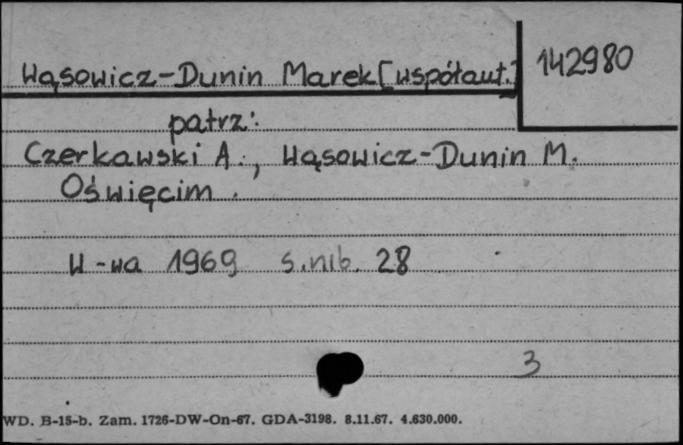 Wąsowicz-Dunin Marek [współaut.]
142980
patrz:
Czerkawski A., Wąsowicz-Dunin M.
Oświęcim.
W-wa 1969 s.nlb. 28
3
WD. B-15-b. Zam. 1726-DW-On-67. GDA-3198. 8.11.67. 4.630.000.